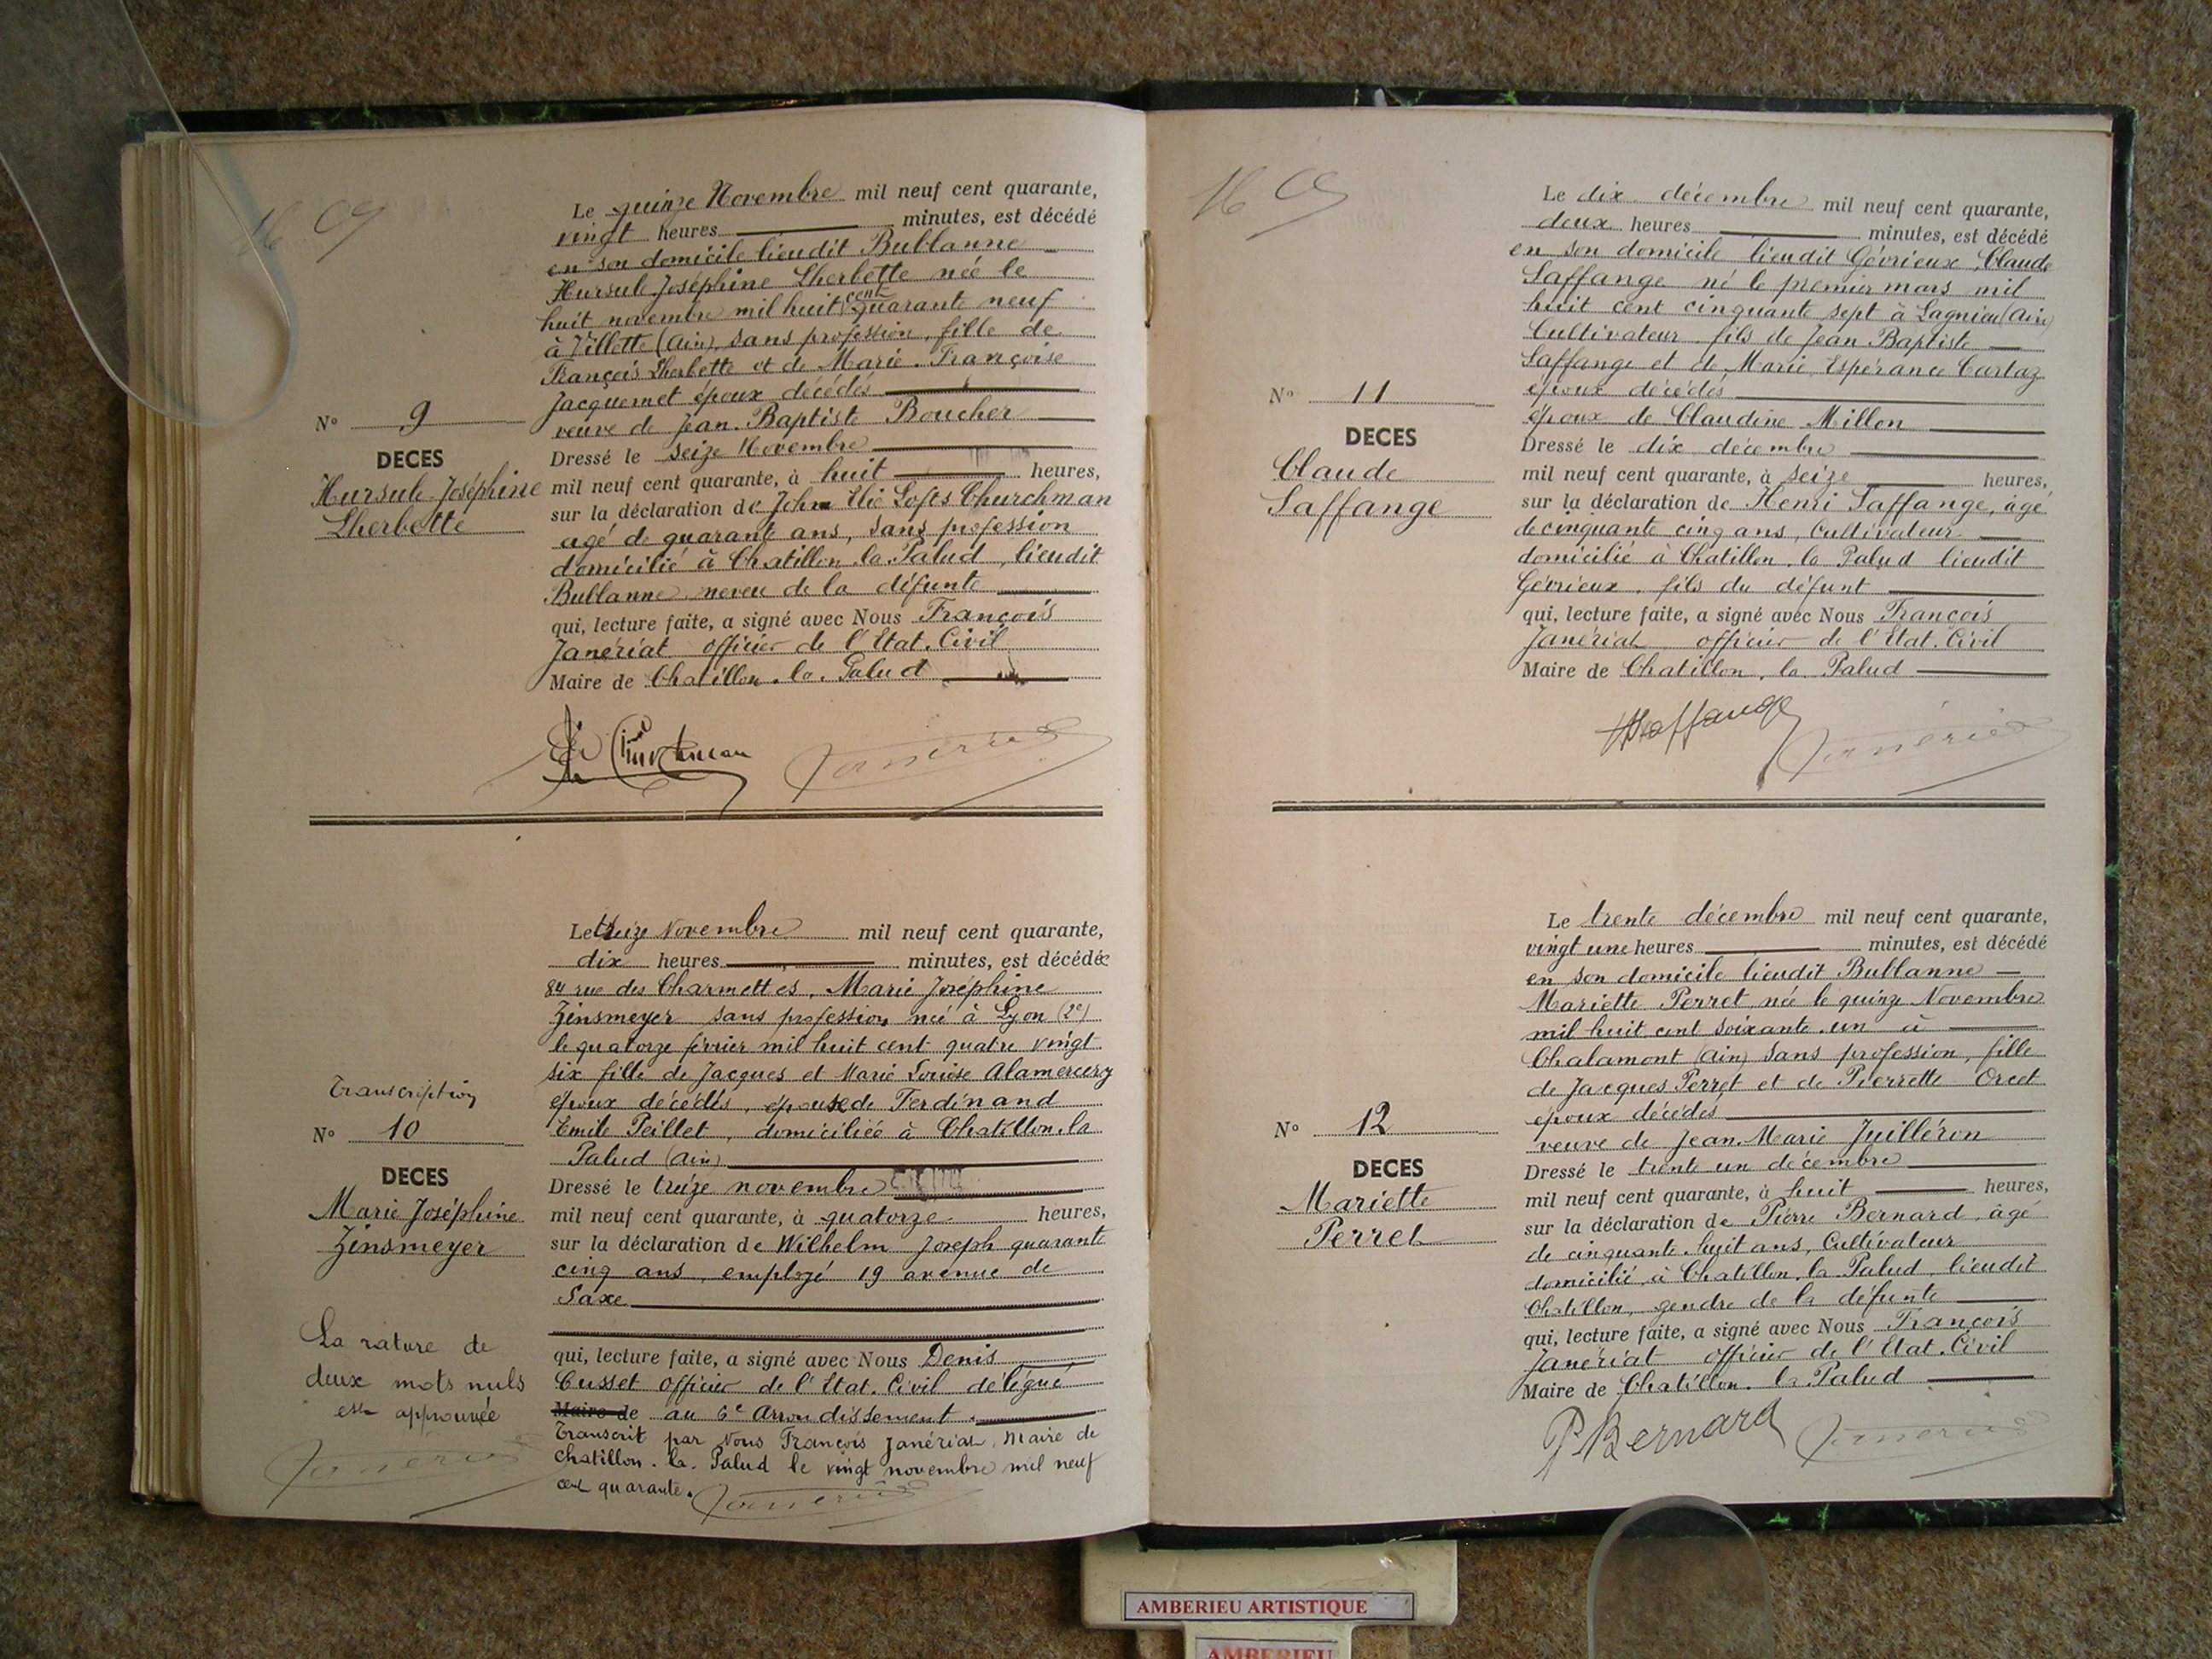 Le quinze Novembre mil neuf cent quarante,
vingt heures minutes, est décédé
en son domicile lieudit Bublanne
Hursule Joséphine Lherbette née le
huit novembre mil huit cent quarante neuf
à Villette (Ain), sans profession, fille de
François Lherbette et de Marie Françoise
Jacquemet époux décédés
veuve de Jean Baptiste Boucher
Dressé le seize Novembre
mil neuf cent quarante, à huit heures,
sur la déclaration de John Elie Lofts Churchman
agé de quarante ans, sans profession
domicilié à Chatillon la Palud, lieudit
Bublanne neveu de la défunte
qui, lecture faite, a signé avec Nous François
Janériat officier de l'Etat Civil
Maire de Chatillon la Palud
N° 9
DECES
Hursule Joséphine
Lherbette
Churchman
Janériat
Le treize Novembre mil neuf cent quarante,
dix heures minutes, est décédée
84 rue des Charmettes, Marie Joséphine
Zinsmeyer sans profession née à Lyon (2e)
le quatorze février mil huit cent quatre vingt
six fille de Jacques et Marie Louise Alamercery
époux décédés, épouse de Ferdinand
Emile Peillet, domiciliée à Chatillon la
Palud (Ain)
Dressé le treize novembre
mil neuf cent quarante, à quatorze heures,
sur la déclaration de Wilhelm Joseph quarante
cinq ans, employé 19 avenue de
Saxe
qui, lecture faite, a signé avec Nous Denis
Cusset officier de l'Etat Civil délégué
Maire de au 6e Arrondissement
Transcrit par Nous François Janériat, Maire de
Chatillon la Palud le vingt novembre mil neuf
cent quarante.
Janériat
Transcription
N° 10
DECES
Marie Joséphine
Zinsmeyer
La rature de
deux mots nuls
est approuvée
Janériat
Le dix décembre mil neuf cent quarante,
deux heures minutes, est décédé
en son domicile lieudit Gévrieux Claude
Saffange né le premier mars mil
huit cent cinquante sept à Lagnieu (Ain)
Cultivateur fils de Jean Baptiste
Saffange et de Marie Espérance Cartaz
époux décédés
époux de Claudine Millon
Dressé le dix décembre
mil neuf cent quarante, à seize heures,
sur la déclaration de Henri Saffange, âgé
de cinquante cinq ans, Cultivateur
domicilié à Chatillon la Palud lieudit
Gévrieux, fils du défunt
qui, lecture faite, a signé avec Nous François
Janériat officier de l'Etat Civil
Maire de Chatillon la Palud
N° 11
DECES
Claude
Saffange
HSaffange
Janériat
Le trente décembre mil neuf cent quarante,
vingt une heures minutes, est décédé
en son domicile lieudit Bublanne
Mariette Perret, née le quinze Novembre
mil huit cent soixante un à
Chalamont (Ain) sans profession, fille
de Jacques Perret et de Pierrette Orcet
époux décédés
veuve de Jean Marie Juilléron
Dressé le trente un décembre
mil neuf cent quarante, à huit heures,
sur la déclaration de Pierre Bernard, âgé
de cinquante huit ans, Cultivateur
domicilié à Chatillon la Palud, lieudit
Chatillon, gendre de la défunte
qui, lecture faite, a signé avec Nous François
Janériat officier de l'Etat Civil
Maire de Chatillon la Palud
N° 12
DECES
Mariette
Perret
P Bernard
Janériat
AMBERIEU ARTISTIQUE
AMBERIEU